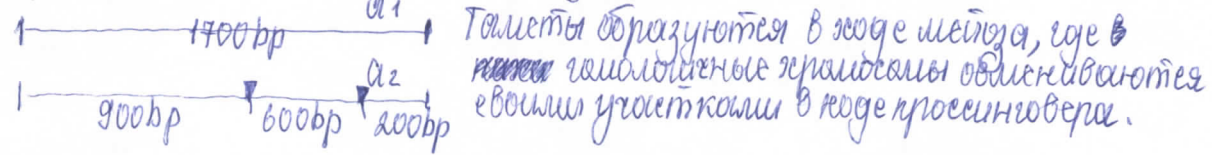 a1
1700bp
a2
900bp 600bp 200bp
Гаметы образуются в ходе мейоза, где в
гомологичные хромосомы обмениваются
своими участками в ходе кроссинговера.